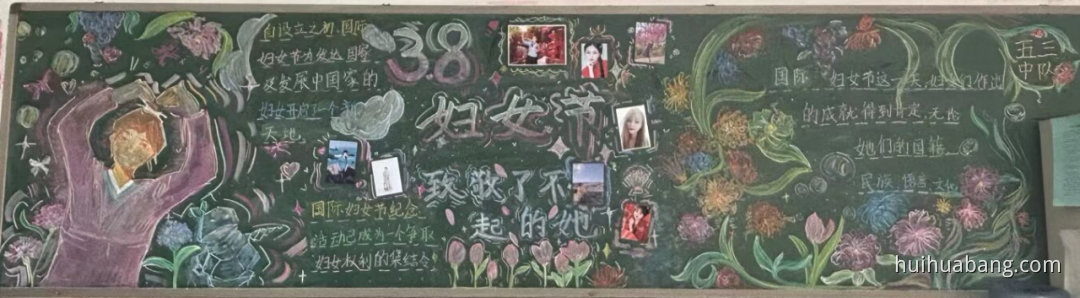 自设立之初,国际
妇女节为发达国家
及发展中国家的
妇女开启了一个新
天地
3.8
妇女节
致敬了不
起的她
国际妇女节纪念
活动已成为一个争取
妇女权利的集结令
国际 妇女节这一天,妇女们作出
的成就得到肯定,无论
她们的国籍、
民族、语言、文化
五三
中队
huihuabang.com